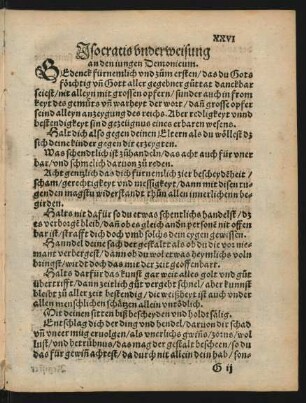 XXVI
Isocratis vnderweisung
an den iungen Demonicum.
BEdenck fürnemlich vnd zům ersten / das du Gots
förchtig vñ Gott aller gegebner gůttat danckbar
seiest / nit alleyn mit grossen opfern / sunder auch in from
keyt des gemüts vñ warheyt der wort / dañ grosse opfer
seind alleyn anzeygung des reychs. Aber redligkeyt vnnd
bestendigkeyt sind gezeignus eines erbaren wesens.
Halt dich also gegen deinen Eltern als du wöltest dz
sich deine kinder gegen dir erzeygten.
Was schendtlich ist zůhandeln / das acht auch für vner
bar / vnd schmelich daruon zů reden.
Acht gentzlich das dich fürnemlich zier bescheydtheit /
scham / gerechtigkeyt vnd messigkeyt / dann mit disen tu-
genden magstu widerstandt thůn allen innerlichenn be-
girden.
Halts nit dafür so du etwas schentlichs handelst / dz
es verborgẽ bleib / dañ ob es gleich andn person̄ nit offen
bar ist / straft dich doch vmb solchs dein eygen gewissen.
Hanndel deine sach der gestalt als ob du die vor nie-
mant verbergest / dann ob du wol etwas heymlichs voln
bringst / wirt doch das mit der zeit geoffenbart.
Halts darfür das kunst gar weit alles golt vnd gůt
übertrifft / dann zeitlich gůt vergeht schnel / aber kunst
bleibt zů aller zeit bestendig / die weißheyt ist auch vnder
allen menschlichen schätzen allein vntödlich.
Mit deinen sitten biß bescheyden vnd holdtsälig.
Entschlag dich der ding vnd hendel / daruon dir schad
vñ vneer mag eruolgen / als vnerlichs gwiñs / zorns / wol
lust / vnd betrübnus / das mag der gestalt bescheen / so du
das für gewiñ achtest / da durch nit allein dein hab / son-
G ij